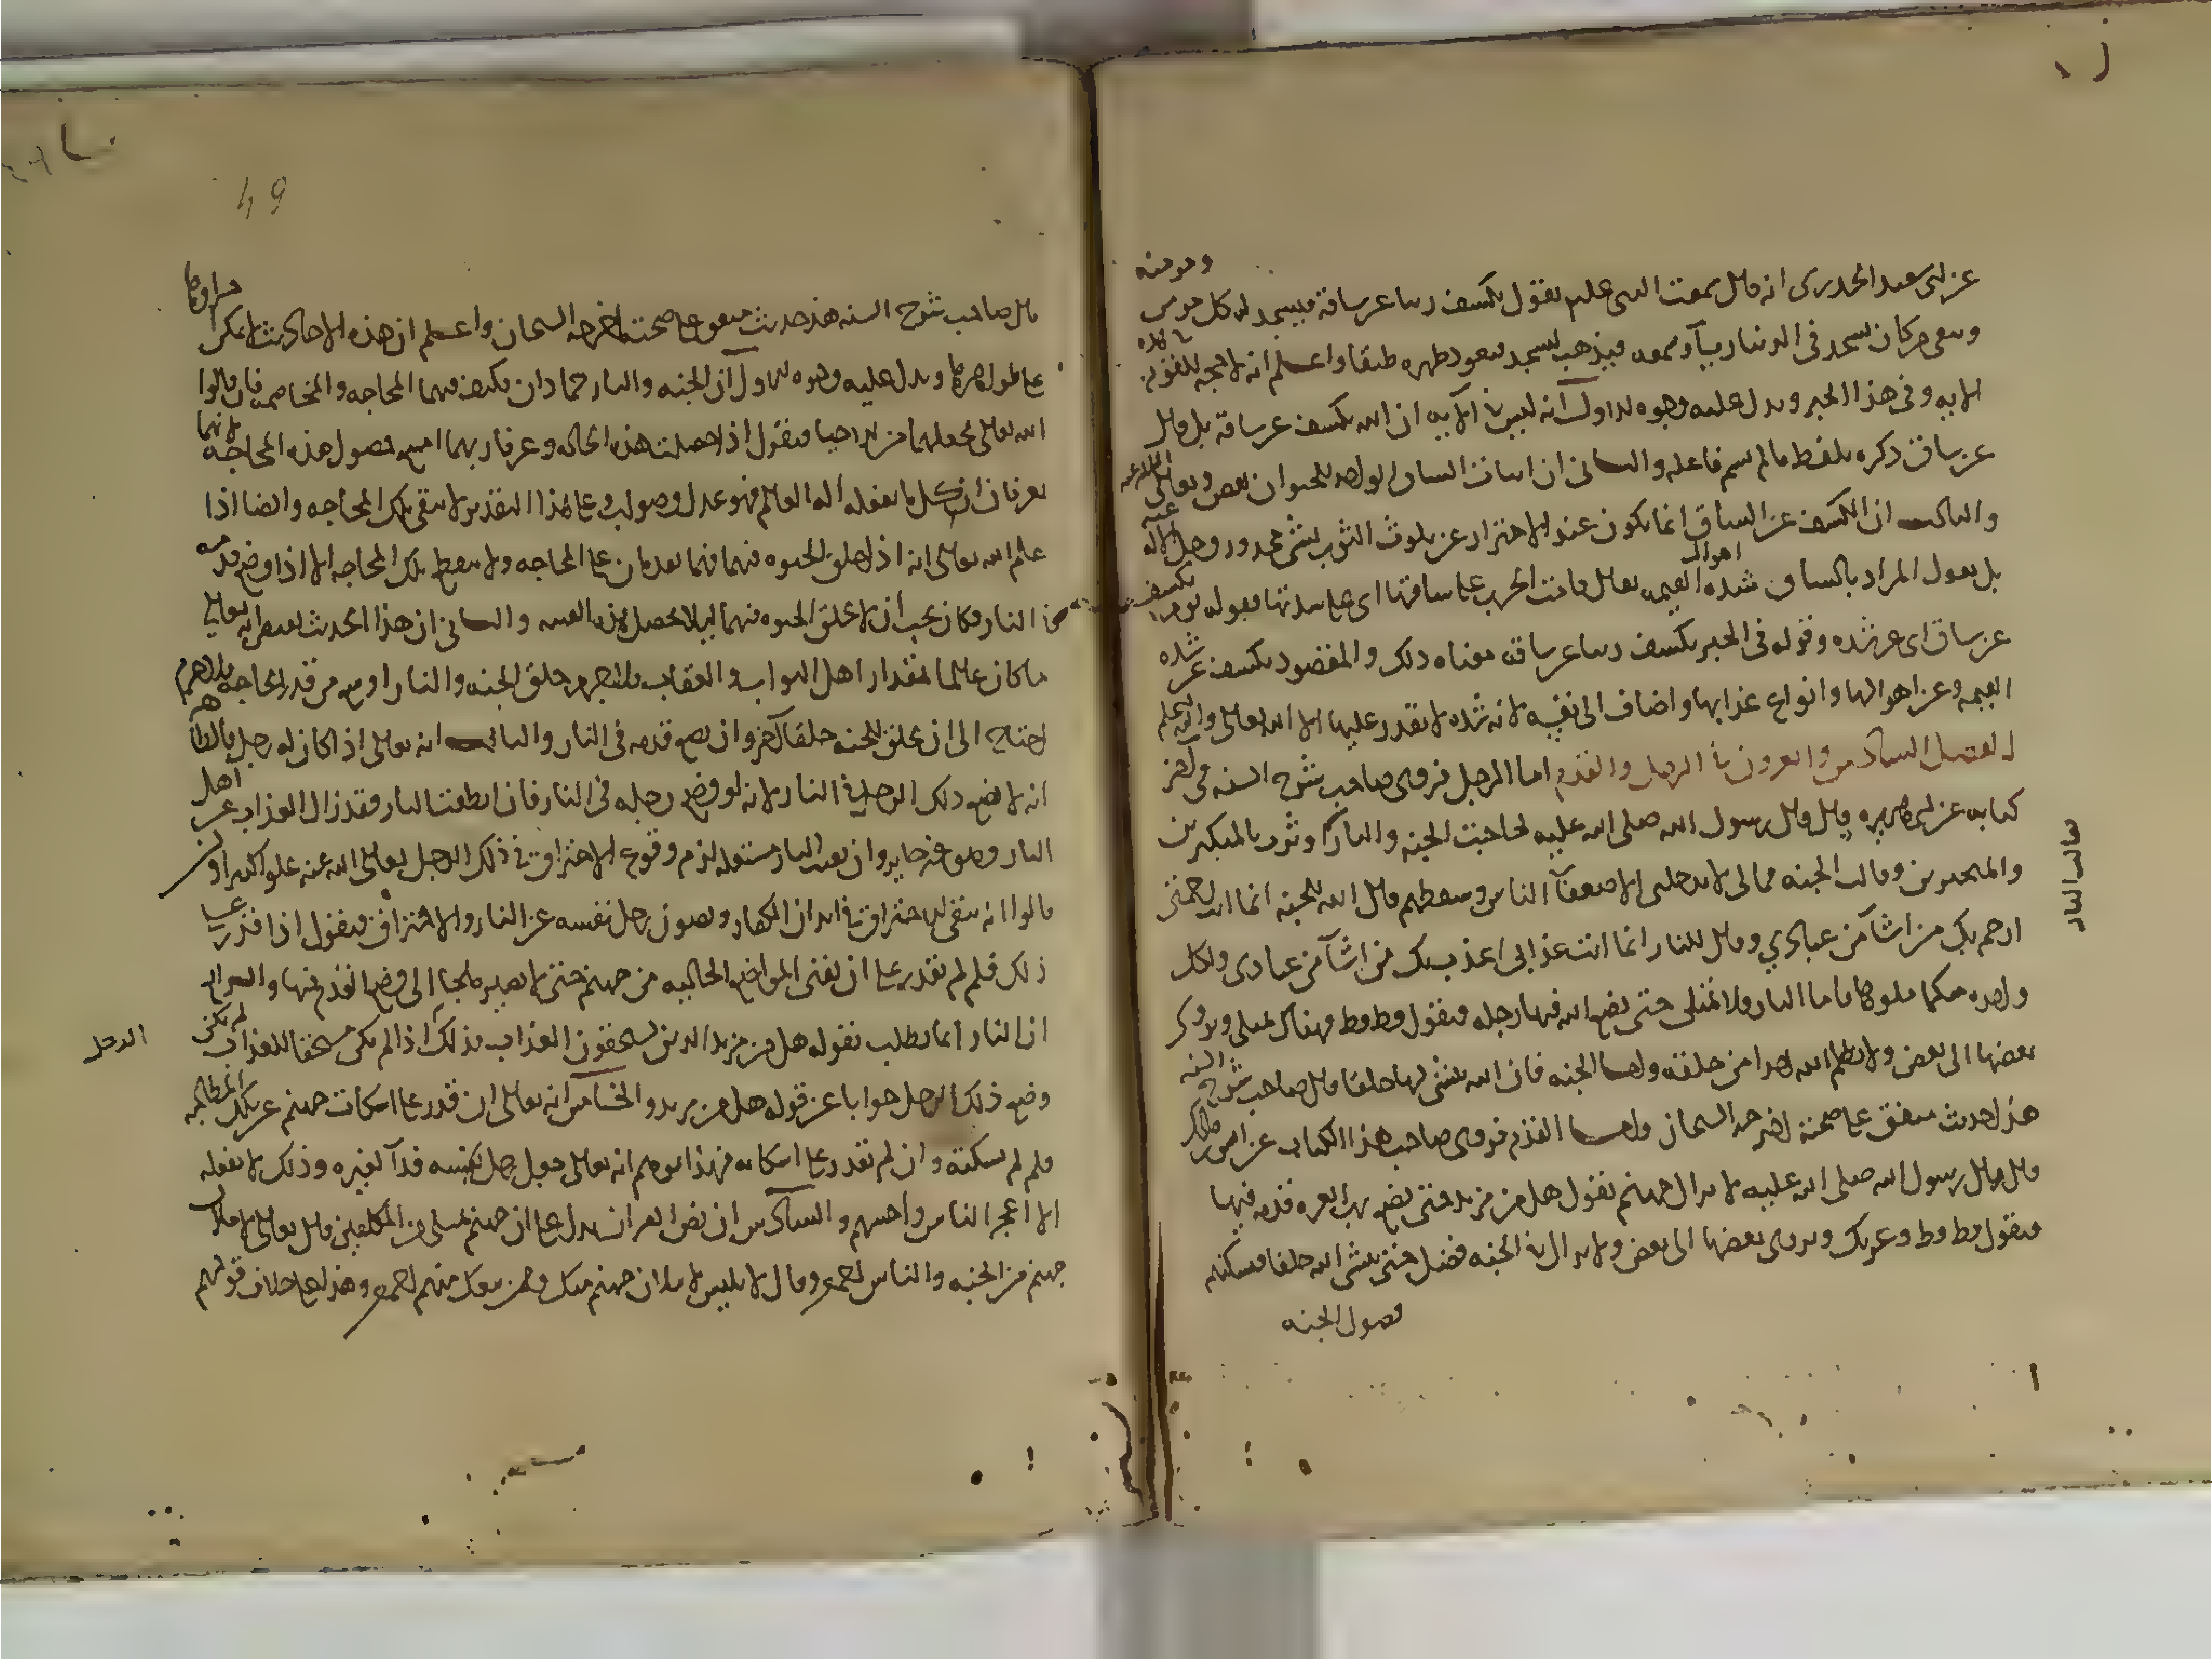 عن ابى سعيد الخدرى انه قال سمعت النبى علیه يقول يكشف ربنا عن ساقه فيسجد له كل مومن ومومنه
ويبقى من كان يسجد فى الدنيا رياء وسمعه فيذهب ليسجد فيعود ظهره طبقا واعلم انه لا حجه للقوم
الايه وفى هذا الخبر ويدل عليه وجوه الاول انه ليس فى الآيه ان الله يكشف عن ساقه بل قال
عن ساق ذكره بلفظ مالم يسم فاعله والثانى ان اثبات الساق الواحد للحيوان نقص وتعالى الله عنه
والثالث ان الكشف عن الساق انما يكون عند الاحتراز عن تلوث الثوب بشى محذور وجل الاله عنه
بل نقول المراد بالساق شده اهوال القيمه يقال قامت الحرب على ساقها اى على شدتها فقوله يوم يكشف
عن ساق اى عن شده وقوله فى الخبر يكشف ربنا عن ساقه معناه ذلك والمقصود يكشف عن شده
القيمه وعن اهوالها وانواع عذابها واضاف الى نفسه لانه شده لا يقدر عليها الا الله تعالى والله اعلم
الفصل السادس والعشرون فى الرجل والقدم اما الرجل فروى صاحب شرح السنه فى آخر
كتابه عن ابى هريره قال قال رسول الله صلى الله عليه تحاجت الجنه والنار اوثرت بالمتكبرين
فقالت النار
والمتجبرين وقالت الجنه فمالى لا يدخلنى الا ضعفآ الناس وسقطهم قال الله للجنه انما انت رحمتى
ارحم بك من اشآ من عبادي وقال للنار انما انت عذابى اعذب بك من اشآ من عبادى ولكل
واحده منكما ملوها فاما النار فلا تمتلى حتى يضع الله فيها رجله فتقول قط قط فهناك تمتلى ويزوى
بعضها الى بعض ولا يظلم الله احدا من خلقه واما الجنه فان الله ينشى لها خلقا قال صاحب شرح السنه
هذا حديث متفق على صحته اخرجه الشيخان واما القدم فروى صاحب هذا الكتاب عن انس بن مالك
قال قال رسول الله صلى الله عليه لا يزال جهنم تقول هل من مزيد حتى يضع رب العزه قدمه فيها
فتقول قط قط وعزتك ويزوى بعضها الى بعض ولا يزال فى الجنه فضل حتى ينشى الله خلقا فيسكنهم
فضول الجنه
49
قال صاحب شرح السنه هذا حديث متفق على صحته اخرجه الشيخان واعلم ان هذه الاحاديث لا يمكن
على ظواهرها ويدل عليه وجوه الاول ان الجنه والنار جمادان فكيف منهما المحاجه والمخاصمه فان قالوا
الله تعالى يجعلهما احيا فنقول اذا حصلت هذه الحاله وعرفا ربهما امتنع حصول هذه المحاجه لانهما
يعرفان ان كل ما يفعله اله العالم فهو عدل وصواب وعلى هذا التقدير لا يبقى تلك المحاجه وايضا اذا
علم الله تعالى انه اذا خلق الحيوه فيهما فهما يقدمان على المحاجه ولا ينقطع تلك المحاجه الا اذا وضع قدمه
فى النار فكان يجب ان لا يخلق الحيوه فيهما ليلا يحصل هذه الفتنه والثانى ان هذا الحديث يقتضى انه تعالى
ما كان عالما بمقدار اهل الثواب والعقاب فلا جرم خلق الجنه والنار اوسع من قدر الحاجه فلا جرم
احتاج الى ان يخلق للجنه خلقا آخر وان يضع قدمه فى النار والثالث انه تعالى اذا كان له رجل فالظاهر
انه لا يضع ذلك الرجل فى النار لانه لو وضع رجله فى النار فان انطفت النار فقد زال العذاب عن اهل
النار وهو غير جايز وان بقيت النار مشتعله لزم وقوع الاحتراق فى ذلك الرجل تعالى الله عنه علوا كبيرا ولئن
قالوا انه يبقى الاحتراق فى ابدان الكفار ويصون رجل نفسه عن النار والاحتراق فنقول اذا قدر على
ذلك فلم لم يقدر على ان يفنى المواضع الخاليه من جهنم حتى لا يصير ملجا الى وضع القدم فيها والرابع
ان النار انما تطلب بقوله هل من مزيد الذين يستحقون العذاب فذلك الرجل اذا لم يكن مستحقا للعذاب لم يكن
وضع ذلك الرجل جوابا عن قوله هل من مزيد والخامس انه تعالى ان قدر على اسكات جهنم عن تلك المطالبه
فلم لم يسكته وان لم يقدر على اسكاته فهذا يوهم انه تعالى جعل رجل نفسه فدآ لغيره وذلك لا يفعله
الا اعجز الناس واخسهم والسادس ان نص القران يدل على ان جهنم تمتلى من المكلفين قال تعالى لاملان
جهنم من الجنه والناس اجمعين وقال لابليس لاملان جهنم منك وممن تبعك منهم اجمعين وهذا على خلاف قولهم